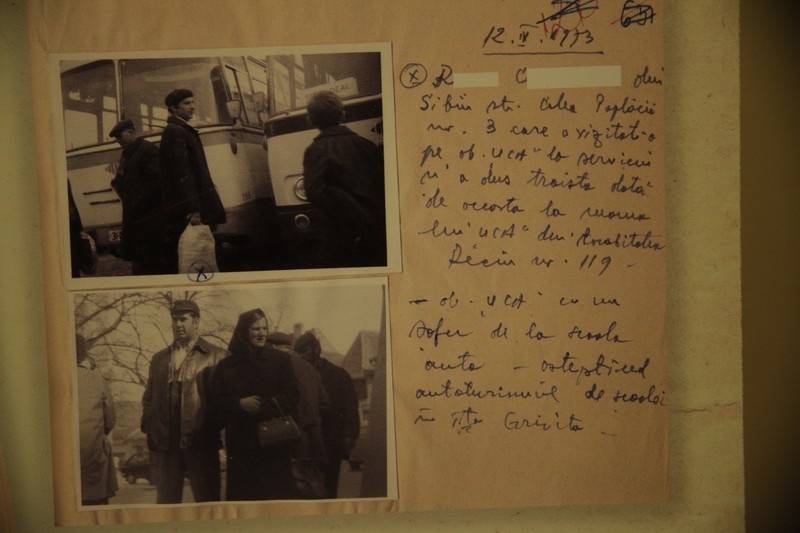 12.IV.1973
(X) R C din
Sibiu str. Calea Poplăcii
nr. 3 care a vizitat-o
pe ob. "UCA" la serviciu
și a dus traista dată
de acesta la mama
lui "UCA" din localitatea
Răcin nr. 119 -
- ob. "UCA" cu un
șofer de la școala
auto - așteptînd
autoturismul de școală
în Pța Grivița -
X